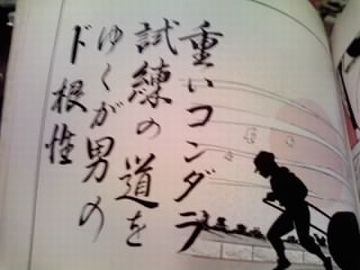 重いコンダラ
試練の道を
ゆくが男の
ド根性